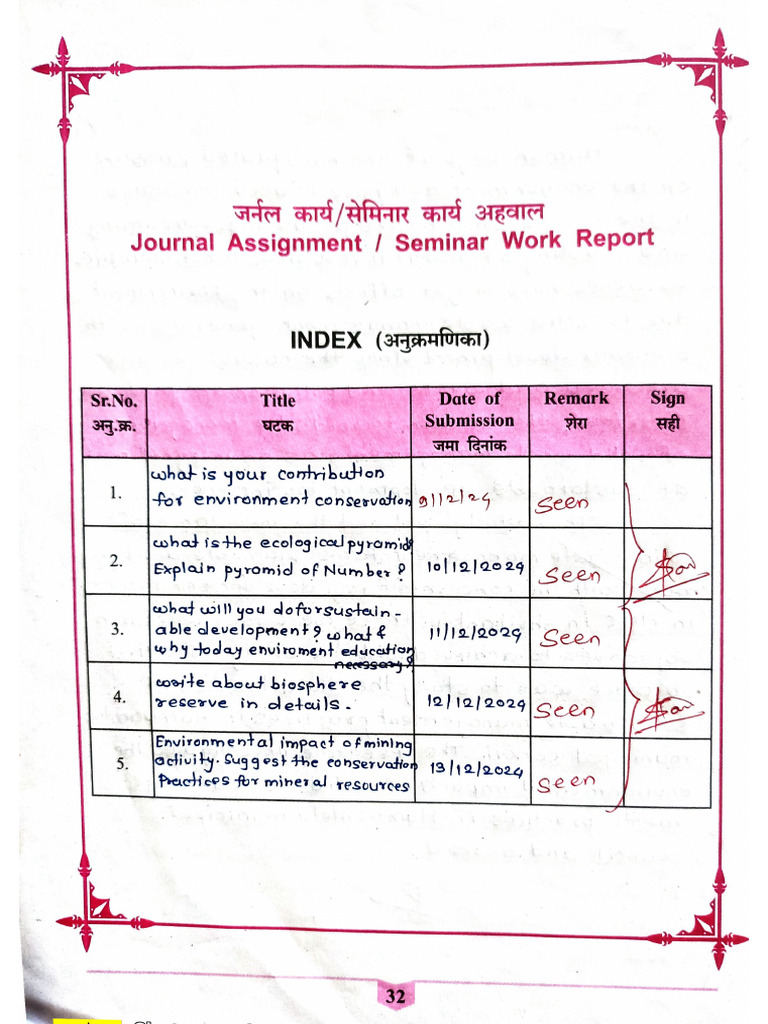 जर्नल कार्य/सेमिनार कार्य अहवाल
Journal Assignment / Seminar Work Report
INDEX (अनुक्रमणिका)
Sr.No. Title Date of Remark Sign
Submission
अनु.क्र. घटक जमा दिनांक शेरा सही
what is your contribution
1. for environment conservation 9/12/24 seen
what is the ecological pyramid
2. Explain pyramid of Number? 10/12/2024 seen
what will you do for sustain-
3. able development? what & 11/12/2024 seen
why today enviroment education
necessary?
write about biosphere
4. reserve in details. 12/12/2024 seen
Environmental impact of mining
5. activity. suggest the conservation 13/12/2024 seen
Practices for mineral resources
32